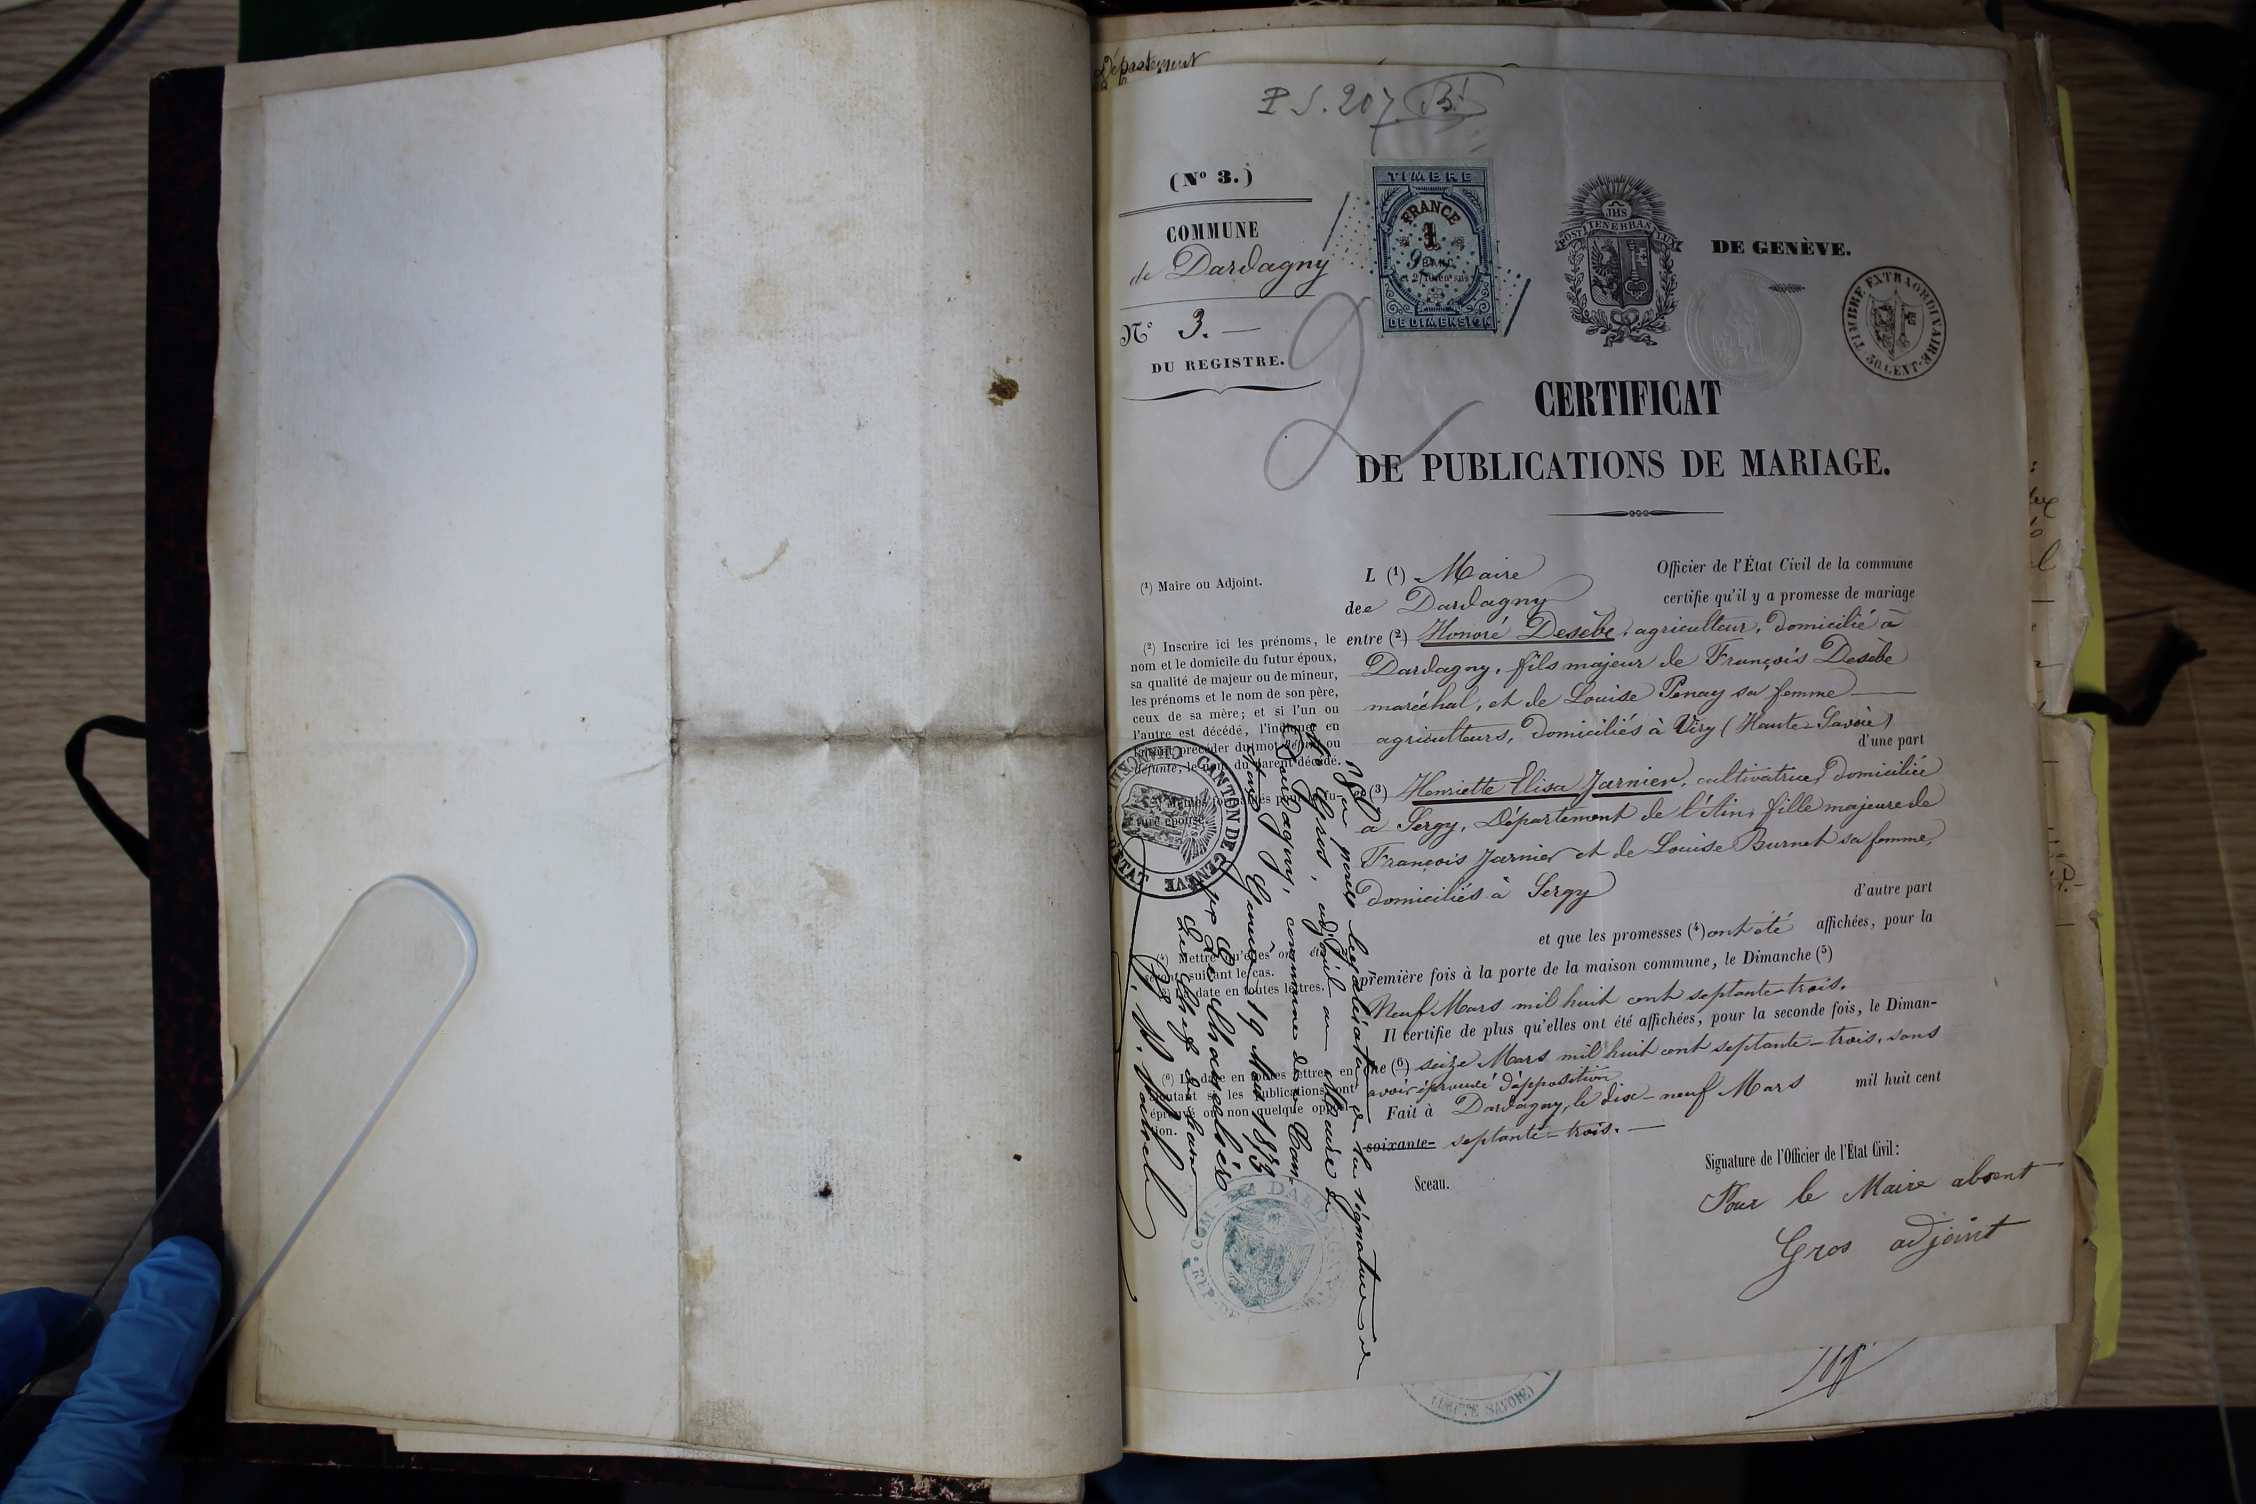 Département
P S. 207 B1
(Nº 3.)
COMMUNE
de Dardagny
Nº 3. —
DU REGISTRE.
2
TIMBRE
FRANCE
1
DE DIMENSION
JHS
POST TENEBRAS LUX
DE GENÈVE.
TIMBRE EXTRAORDINAIRE
50 CENT.
CERTIFICAT
DE PUBLICATIONS DE MARIAGE.
(1) Maire ou Adjoint.
L (1) Maire Officier de l'État Civil de la commune
dee Dardagny certifie qu'il y a promesse de mariage
(2) Inscrire ici les prénoms, le
nom et le domicile du futur époux,
sa qualité de majeur ou de mineur,
les prénoms et le nom de son père,
ceux de sa mère; et si l'un ou
l'autre est décédé, l'indiquer en
faisant précéder du mot défunt ou
défunte, le nom du parent décédé.
entre (2) Honoré Desèbe, agriculteur, domicilié à
Dardagny, fils majeur de François Desèbe
maréchal, et de Louise Penay sa femme —
agriculteurs, domiciliés à Viry (Haute-Savoie)
d'une part
(3) Henriette Elisa Jarnier, cultivatrice, domiciliée
à Sergy, Département de l'Ain, fille majeure de
François Jarnier et de Louise Burnet sa femme,
domiciliés à Sergy d'autre part
et que les promesses (4) ont été affichées, pour la
première fois à la porte de la maison commune, le Dimanche (5)
Neuf Mars mil huit cent septante-trois.
Il certifie de plus qu'elles ont été affichées, pour la seconde fois, le Diman-
che (6) seize Mars mil huit cent septante-trois, sans
avoir éprouvé d'opposition
Fait à Dardagny, le dix-neuf Mars mil huit cent
soixante- septante-trois. —
(4) Mettre qu'elles ont été ou
seront suivant le cas.
(5) La date en toutes lettres.
(6) La date en toutes lettres en
ajoutant si les publications ont
éprouvé ou non quelque opposi-
tion.
Sceau.
Signature de l'Officier de l'État Civil:
Pour le Maire absent
Gros adjoint
Vu pour légalisation de la signature de
Mr Gros, adjoint au Maire de
Dardagny, commune de ce Can-
ton, Genève 19 Mars 1873
pr Le Chancelier
Le Chef de bureau
CANTON DE GENÈVE
CHANCELLERIE D'ÉTAT
COM. DE DARDAGNY
REP. DE
(HAUTE SAVOIE)